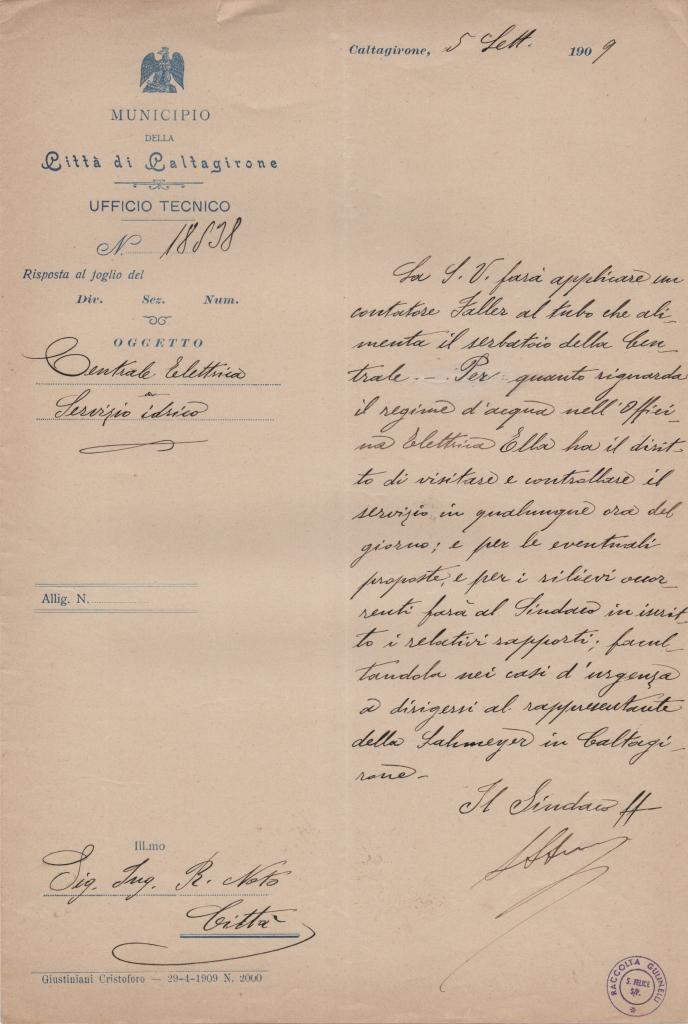 MUNICIPIO
DELLA
Città di Caltagirone
UFFICIO TECNICO
N. 18538
Risposta al foglio del
Div. Sez. Num.
OGGETTO
Centrale Elettrica
Servizio idrico
Allig. N.
Ill.mo
Sig. Ing. R. Noto
Città
Giustiniani Cristoforo — 29-4-1909 N. 2000
Caltagirone, 5 Sett. 1909
La S. V. farà applicare un
contatore Faller al tubo che ali-
menta il serbatoio della Cen-
trale. — Per quanto riguarda
il regime d'acqua nell'Offici-
na Elettrica Ella ha il dirit-
to di visitare e controllare il
servizio in qualunque ora del
giorno; e per le eventuali
proposte, e per i rilievi occor-
renti farà al Sindaco in iscrit-
to i relativi rapporti; facul-
tandola nei casi d'urgenza
a dirigersi al rappresentante
della Lahmeyer in Caltagi-
rone—
Il Sindaco ff
RACCOLTA GULINELLI
S. FELICE
S/P.